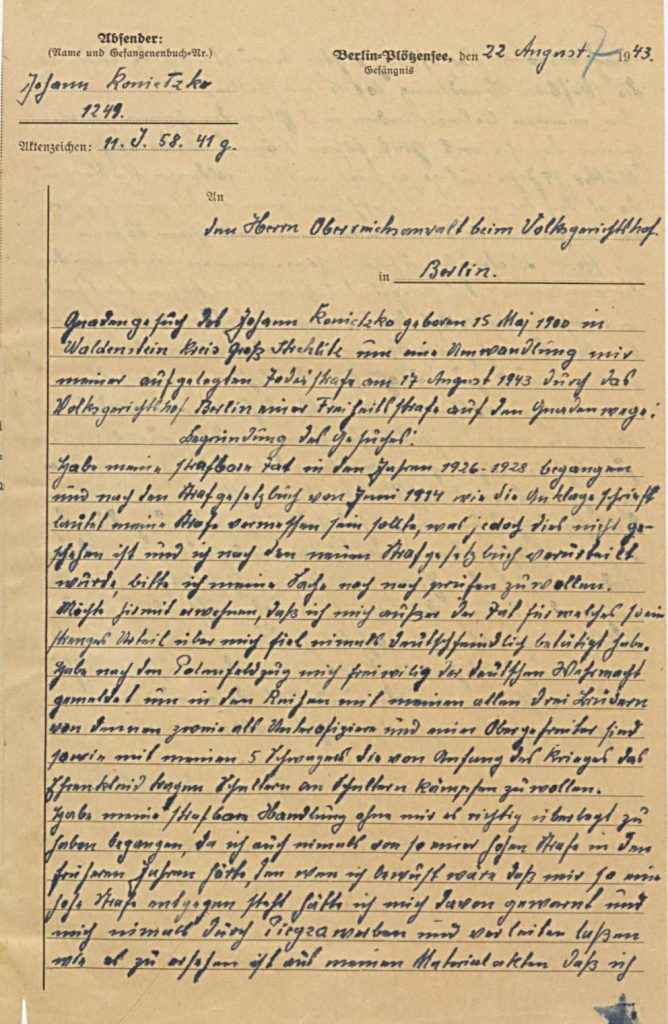 Absender:
(Name und Gefangenenbuch-Nr.)
Johann Konietzko
1249.
Aktenzeichen: 11. J. 58. 41 g.
Berlin-Plötzensee, den 22 August. 1943.
Gefängnis
An
den Herrn Oberreichsanwalt beim Volksgerichtshof.
in Berlin.
Gnadengesuch des Johann Konietzko geboren 15 Maj 1900 in
Waldenstein Kreis Groß Strehlitz um eine Umwandlung mir
meiner aufgelegten Todesstrafe am 17 August 1943 durch das
Volksgerichtshof Berlin einer Freiheitsstrafe auf den Gnadenwege.
Begründung des Gesuches:
Habe meine strafbare Tat in den Jahren 1926-1928 begangen
und nach den Strafgesetzbuch von Juni 1914 wie die Anklageschrift
lautet meine Strafe vermessen sein sollte, was jedoch dies nicht ge-
schehen ist und ich nach den neuen Strafgesetzbuch verurteilt
würde, bitte ich meine Sache noch nach prüfen zu wollen.
Möchte hirmit erwehnen, daß ich mich außer der Tat für welches so ein
strenges Urteil über mich fiel nimals deutschfeindlich betätigt habe.
Habe nach den Polenfeldzug mich freiwilig der deutschen Wehrmacht
gemeldet um in den Reihen mit meinen allen drei Brüdern
von dennen zweie als Unterofiziere und einer Obergefreiter sind
sowie mit meinen 5 Schwagers die von Anfang des Krieges das
Ehrenkleid tragen Schultern an Schultern kämpfen zu wollen.
Habe meine strafbare Handlung ohne mir es richtig überlegt zu
haben begangen, da ich auch nimals von so einer hohen Strafe in den
früheren Jahren hörte, den wen ich bewust wäre daß mir so eine
hohe Strafe entgegen steht hätte ich mich davon gewarnt und
mich nimals durch werben und verleiten laßen
wie es zu ersehen ist aus meinen Materialakten daß ich